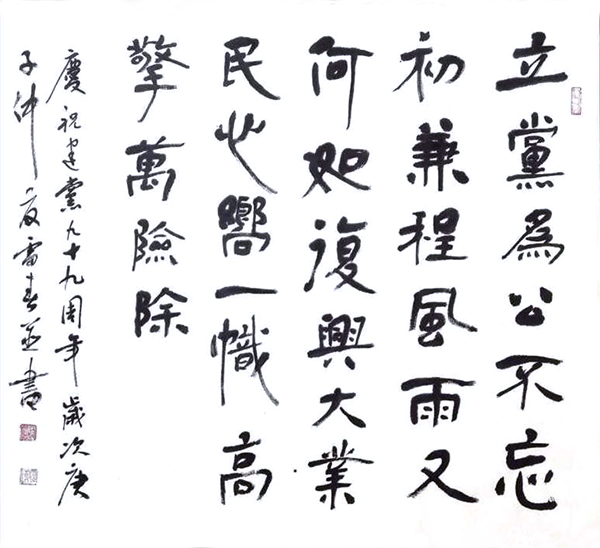 立黨為公不忘
初兼程風雨又
何如復興大業
民心嚮一幟高
擎萬險除
慶祝建黨九十九周年歲次庚
子仲夏雷春並書